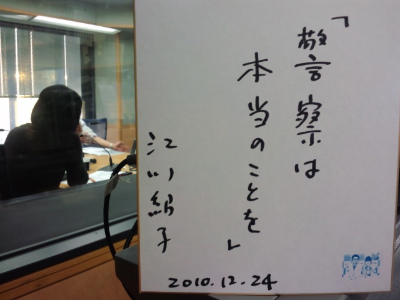 「警察は
本当のことを」
江川紹子
2010.12.24